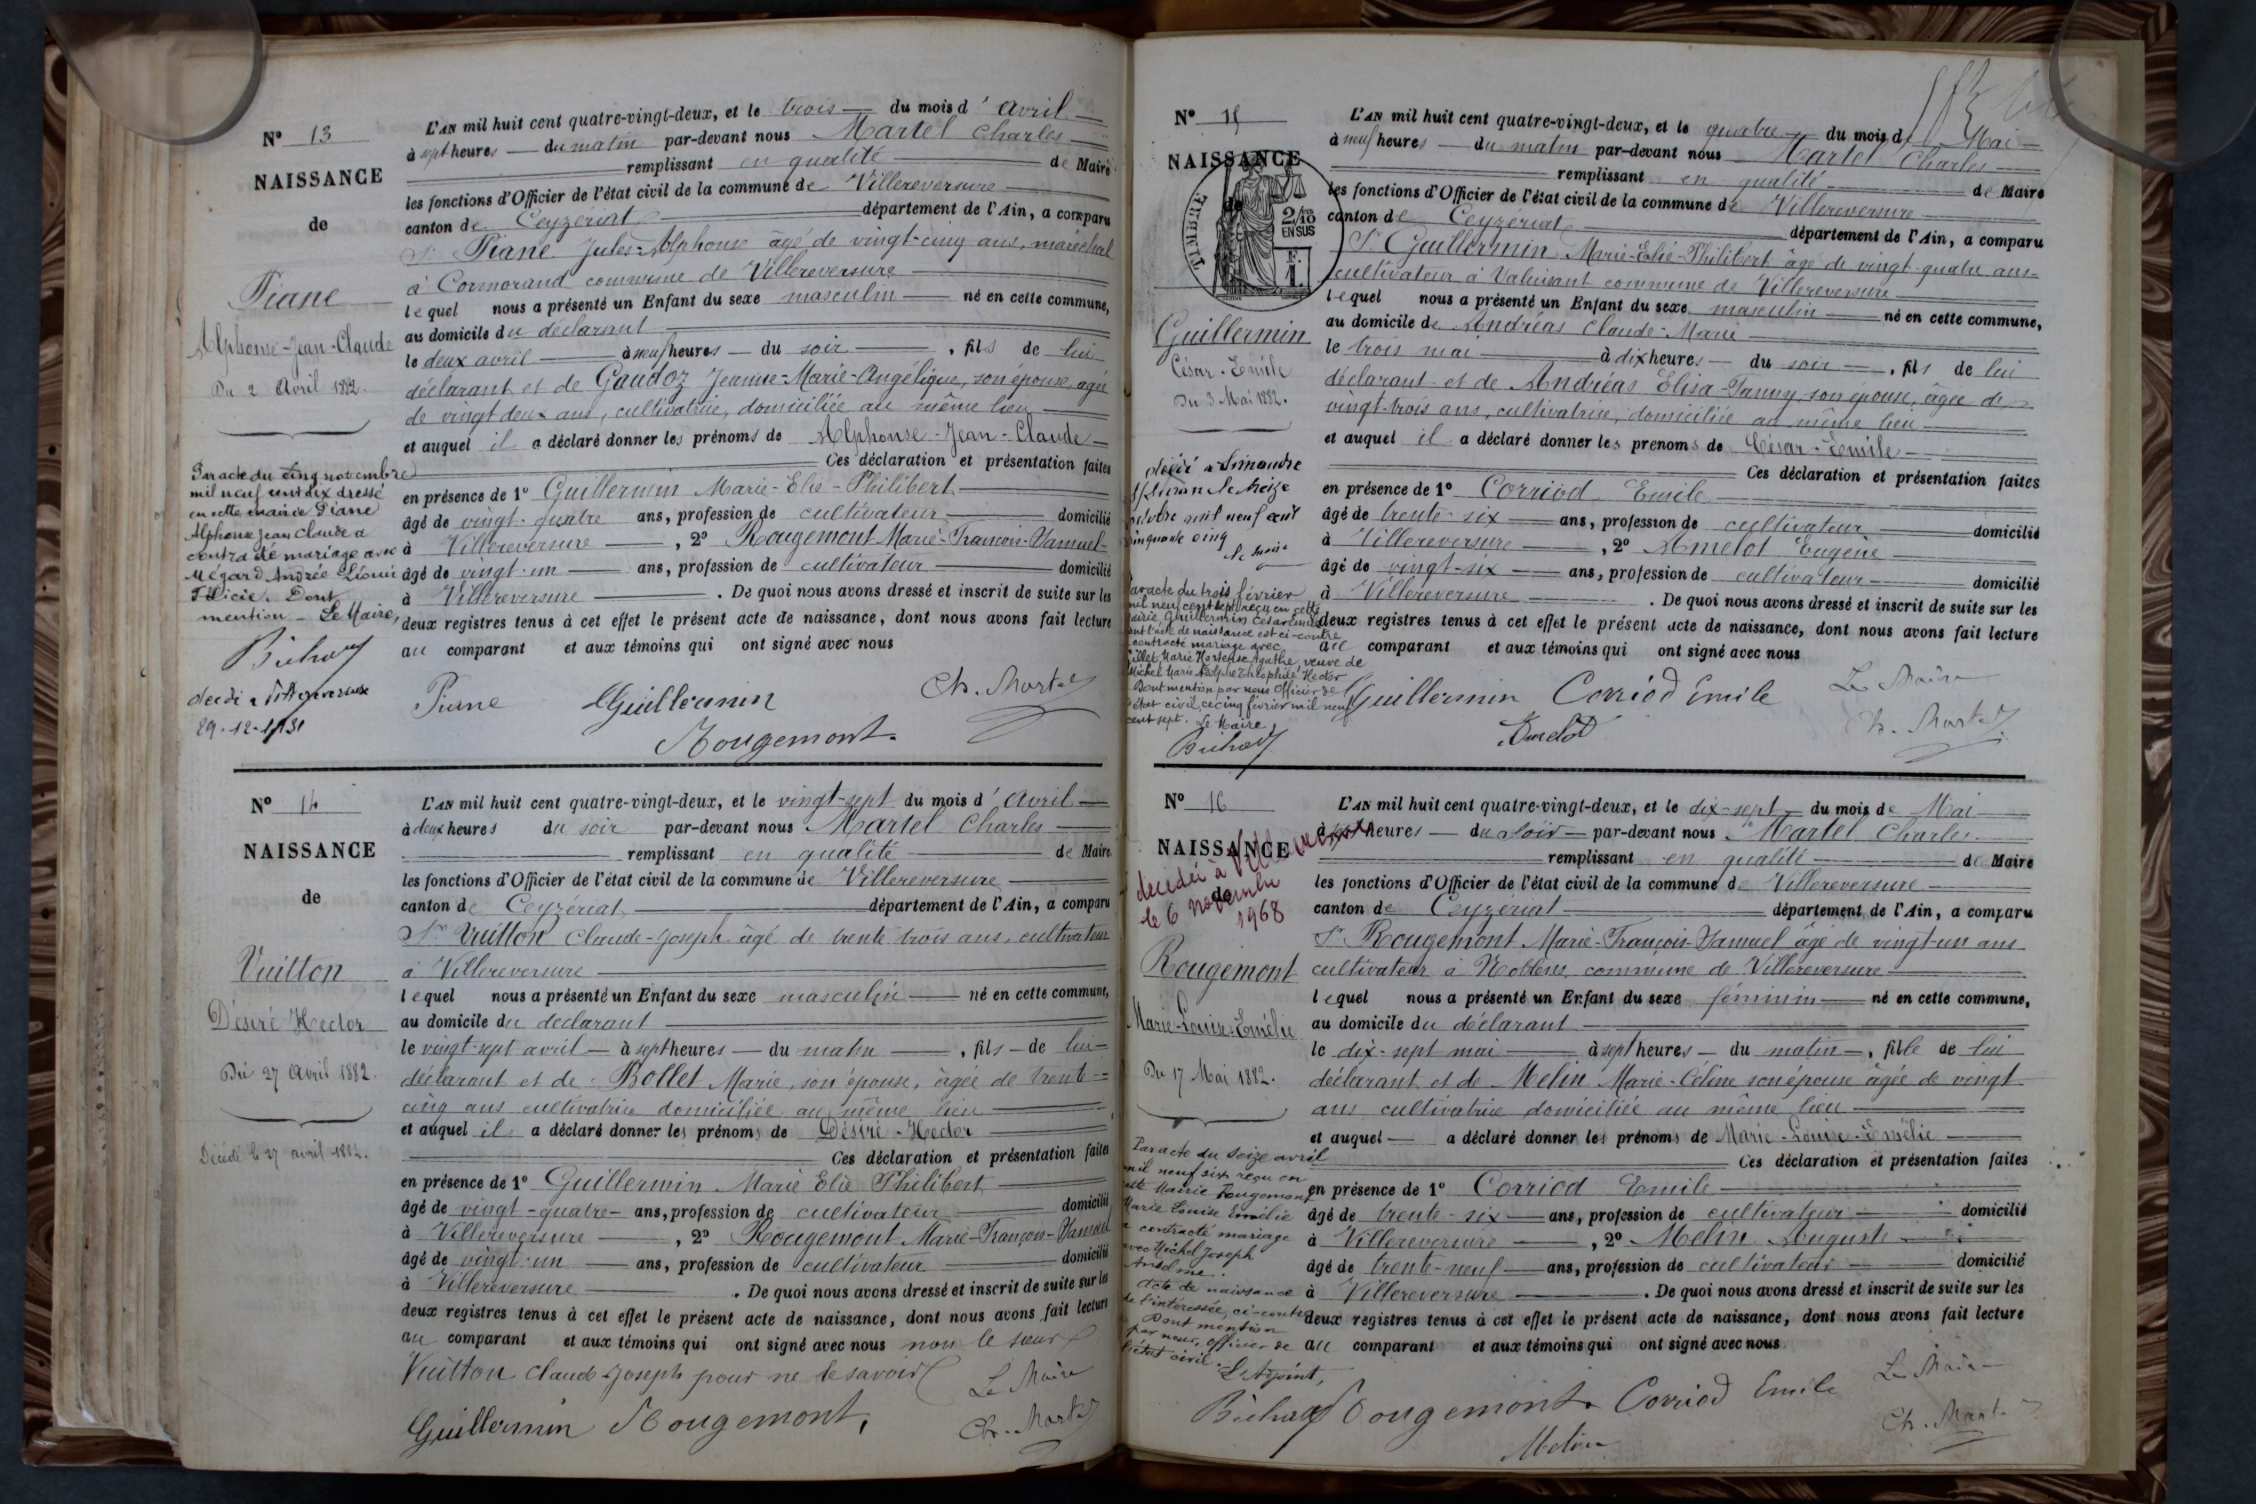 N° 13
NAISSANCE
de
Piane
Alphonse-Jean-Claude
Du 2 Avril 1882.
Par acte du cinq novembre
mil neuf cent dix dressé
en cette mairie Piane
Alphonse Jean Claude a
contracté mariage avec
Mégard Andrée Léonie
Félicie. Dont
mention - Le Maire,
décédé à Villereversure
29-12-1951
L'AN mil huit cent quatre-vingt-deux, et le trois du mois d'Avril
à sept heures du matin par-devant nous Martel Charles
remplissant en qualité de Maire
les fonctions d'Officier de l'état civil de la commune de Villereversure
canton de Ceyzériat département de l'Ain, a comparu
Sr Piane Jules-Alphonse âgé de vingt-cinq ans, maréchal
à Cormorand commune de Villereversure
lequel nous a présenté un Enfant du sexe masculin né en cette commune,
au domicile du déclarant
le deux avril à neuf heures du soir, fils de lui
déclarant et de Gaudoz Jeanne-Marie-Angélique, son épouse, agée
de vingt deux ans, cultivatrice, domiciliée au même lieu
et auquel il a déclaré donner les prénoms de Alphonse-Jean-Claude
Ces déclaration et présentation faites
en présence de 1° Guillermin Marie-Elie-Philibert
âgé de vingt-quatre ans, profession de cultivateur domicilié
à Villereversure, 2° Rougemont Marie-François-Samuel
âgé de vingt-un ans, profession de cultivateur domicilié
à Villereversure. De quoi nous avons dressé et inscrit de suite sur les
deux registres tenus à cet effet le présent acte de naissance, dont nous avons fait lecture
au comparant et aux témoins qui ont signé avec nous
Piane Guillermin Ch. Martel
Rougemont
N° 14
NAISSANCE
de
Vuitton
Désiré Hector
Du 27 Avril 1882.
Décédé le 27 avril 1882.
L'AN mil huit cent quatre-vingt-deux, et le vingt-sept du mois d'Avril
à deux heures du soir par-devant nous Martel Charles
remplissant en qualité de Maire
les fonctions d'Officier de l'état civil de la commune de Villereversure
canton de Ceyzériat département de l'Ain, a comparu
Sr Vuitton Claude-Joseph âgé de trente trois ans, cultivateur
à Villereversure
lequel nous a présenté un Enfant du sexe masculin né en cette commune,
au domicile du déclarant
le vingt-sept avril à sept heures du matin, fils de lui
déclarant et de Bollet Marie, son épouse, âgée de trente-
cinq ans cultivatrice domiciliée au même lieu
et auquel il a déclaré donner les prénoms de Désiré-Hector
Ces déclaration et présentation faites
en présence de 1° Guillermin Marie Elie Philibert
âgé de vingt-quatre ans, profession de cultivateur domicilié
à Villereversure, 2° Rougemont Marie-François-Samuel
âgé de vingt-un ans, profession de cultivateur domicilié
à Villereversure. De quoi nous avons dressé et inscrit de suite sur les
deux registres tenus à cet effet le présent acte de naissance, dont nous avons fait lecture
au comparant et aux témoins qui ont signé avec nous non le sieur
Vuitton Claude-Joseph pour ne le savoir
Le Maire
Guillermin Rougemont, Ch. Martel
N° 15
NAISSANCE
de
TIMBRE
2/10
EN SUS
F.
1.
Guillermin
César-Emile
Du 3 Mai 1882.
décédé à Simandre
s/Suran le treize
octobre mil neuf cent
cinquante cinq
Par acte du trois février
mil neuf cent sept reçu en cette
mairie, Guillermin César Emile
dont l'acte de naissance est ci-contre
a contracté mariage avec
Gillet Marie Hortense Agathe, veuve de
Michel Marie Adolphe Théophile Hector
Dont mention par nous Officier de
l'état civil, ce cinq février mil neuf
cent sept. Le Maire,
L'AN mil huit cent quatre-vingt-deux, et le quatre du mois de Mai
à neuf heures du matin par-devant nous Martel Charles
remplissant en qualité de Maire
les fonctions d'Officier de l'état civil de la commune de Villereversure
canton de Ceyzériat département de l'Ain, a comparu
Sr Guillermin Marie-Elie-Philibert âgé de vingt-quatre ans
cultivateur à Valuisant commune de Villereversure
lequel nous a présenté un Enfant du sexe masculin né en cette commune,
au domicile de Andréas Claude-Marie
le trois mai à dix heures du soir, fils de lui
déclarant et de Andréas Elisa-Fanny son épouse, âgée de
vingt-trois ans, cultivatrice, domiciliée au même lieu
et auquel il a déclaré donner les prénoms de César-Emile
Ces déclaration et présentation faites
en présence de 1° Corriod Emile
âgé de trente-six ans, profession de cultivateur domicilié
à Villereversure, 2° Amelot Eugène
âgé de vingt-six ans, profession de cultivateur domicilié
à Villereversure. De quoi nous avons dressé et inscrit de suite sur les
deux registres tenus à cet effet le présent acte de naissance, dont nous avons fait lecture
au comparant et aux témoins qui ont signé avec nous
Guillermin Corriod Emile Le Maire
Amelot Ch. Martel
N° 16
NAISSANCE
de
décédée à Villereversure
le 6 novembre
1968
Rougemont
Marie-Louise-Emélie
Du 17 Mai 1882.
Par acte du seize avril
mil neuf six reçu en
cette Mairie Rougemont
Marie Louise Emélie
a contracté mariage
avec Michel Joseph
Anselme.
Acte de naissance
de l'intéressée, ci-contre
Dont mention
par nous, officier de
l'état civil.
L'Adjoint,
L'AN mil huit cent quatre-vingt-deux, et le dix-sept du mois de Mai
heures du soir par-devant nous Martel Charles
remplissant en qualité de Maire
les fonctions d'Officier de l'état civil de la commune de Villereversure
canton de Ceyzériat département de l'Ain, a comparu
Sr Rougemont Marie-François-Samuel âgé de vingt-un ans
cultivateur à Noblens commune de Villereversure
lequel nous a présenté un Enfant du sexe féminin né en cette commune,
au domicile du déclarant
le dix-sept mai à sept heures du matin, fille de lui
déclarant et de Melin Marie-Céline son épouse âgée de vingt
ans cultivatrice domiciliée au même lieu
et auquel a déclaré donner les prénoms de Marie-Louise-Emélie
Ces déclaration et présentation faites
en présence de 1° Corriod Emile
âgé de trente-six ans, profession de cultivateur domicilié
à Villereversure, 2° Melin Auguste
âgé de trente-neuf ans, profession de cultivateur domicilié
à Villereversure. De quoi nous avons dressé et inscrit de suite sur les
deux registres tenus à cet effet le présent acte de naissance, dont nous avons fait lecture
au comparant et aux témoins qui ont signé avec nous
Le Maire
Rougemont Corriod Emile Ch. Martel
Melin